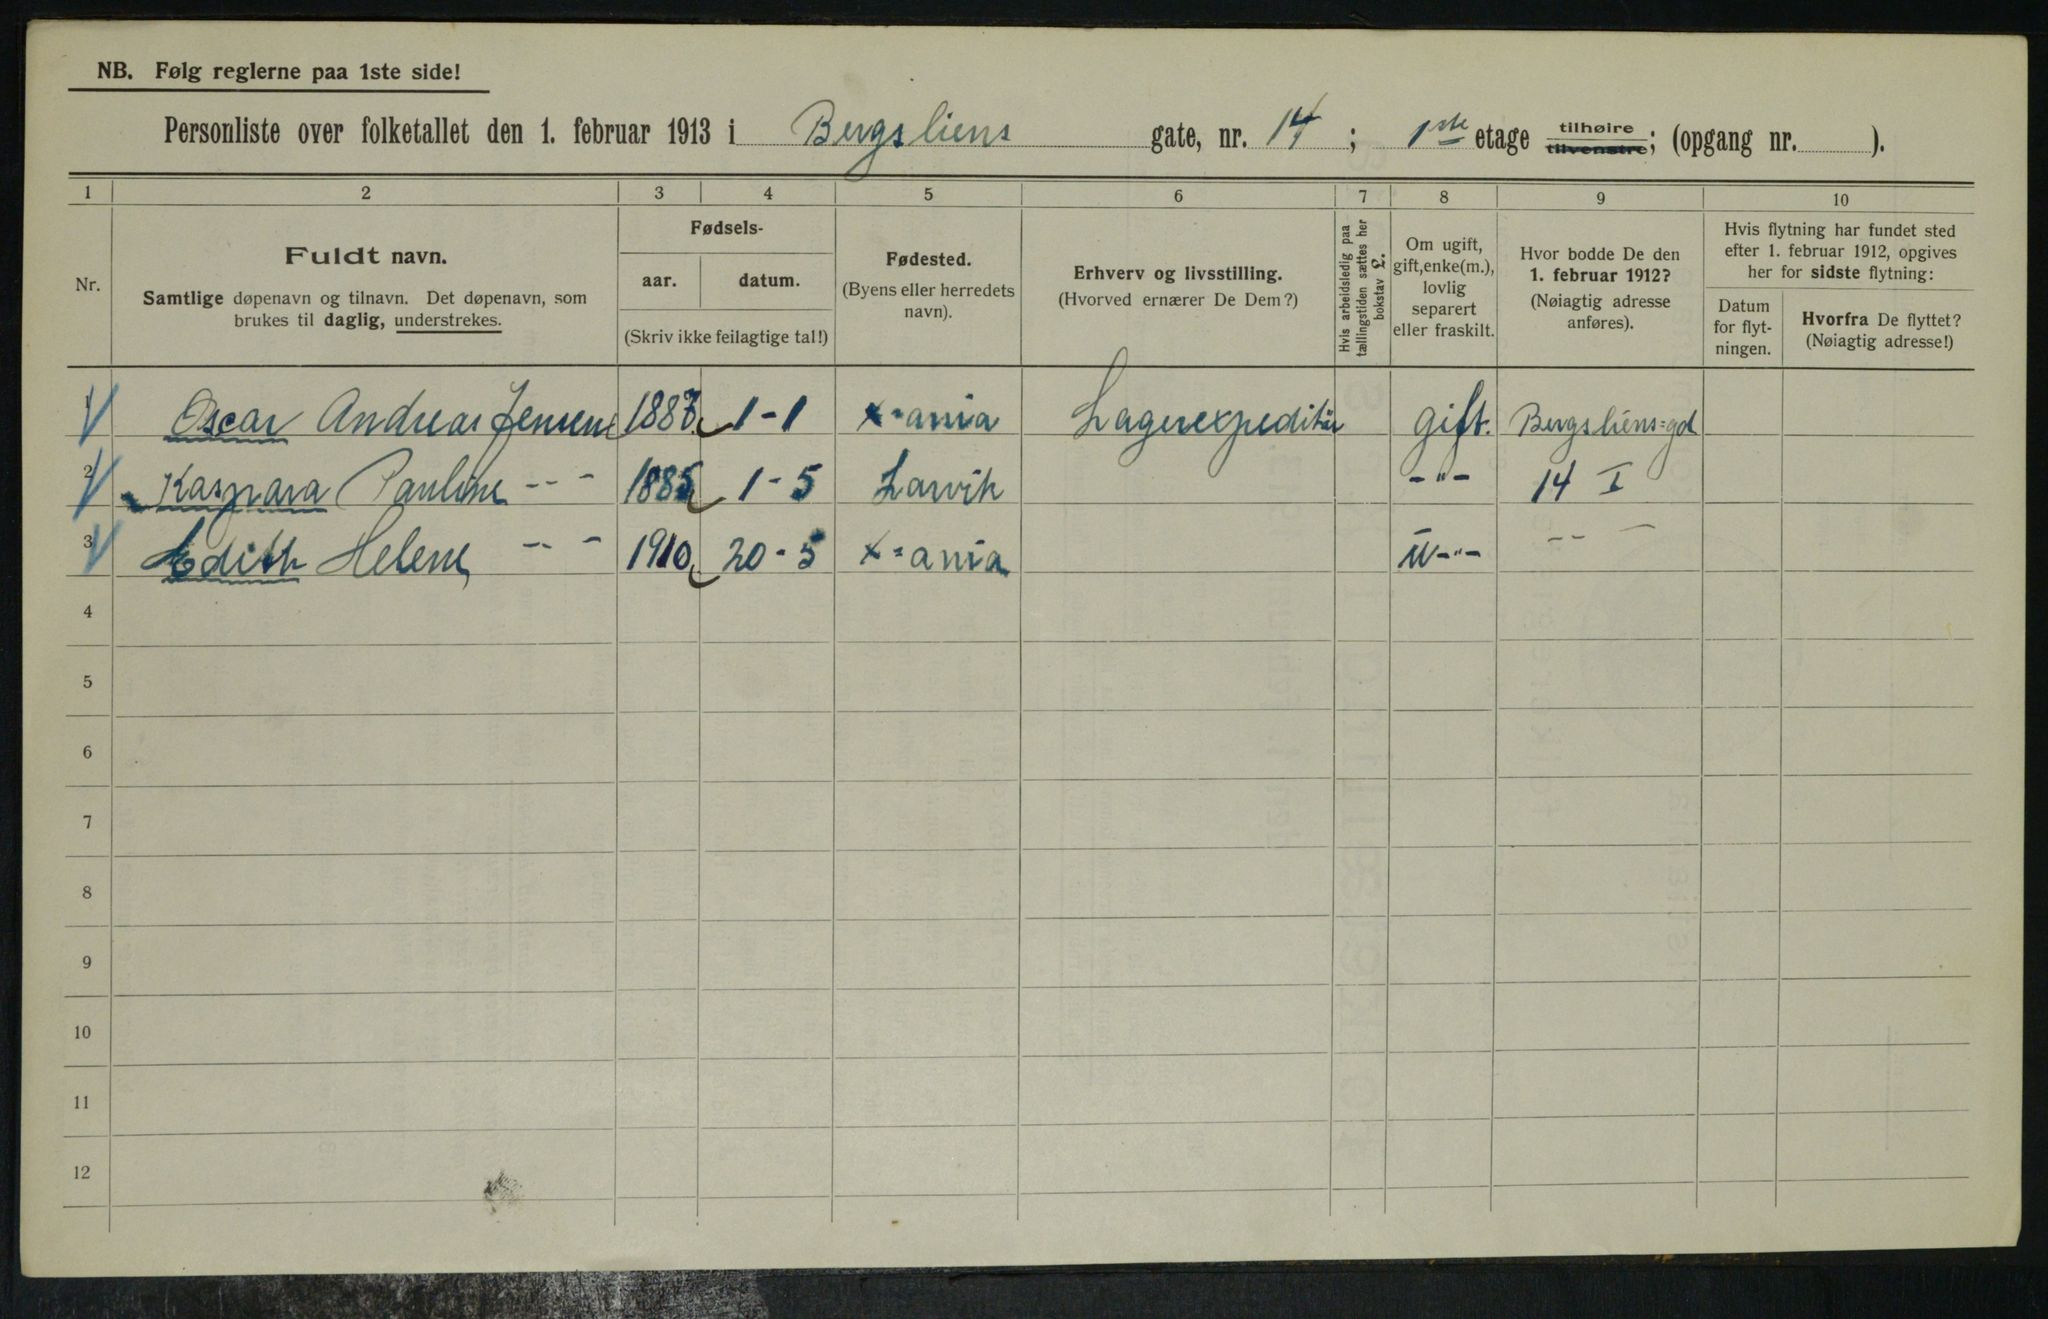 NB. Følg reglerne paa 1ste side!
Personliste over folketallet den 1. februar 1913 i Bergsliens gate, nr. 14; 1ste etage tilhøire tilvenstre; (opgang nr. ).
1 2 3 4 5 6 7 8 9 10
Nr.
Fuldt navn.
Samtlige døpenavn og tilnavn. Det døpenavn, som
brukes til daglig, understrekes.
Fødsels-
aar. datum.
(Skriv ikke feilagtige tal!)
Fødested.
(Byens eller herredets
navn).
Erhverv og livsstilling.
(Hvorved ernærer De Dem?)
Hvis arbeidsledig paa
tællingstiden sættes her
bokstav L.
Om ugift,
gift, enke(m.),
lovlig
separert
eller fraskilt.
Hvor bodde De den
1. februar 1912?
(Nøiagtig adresse
anføres).
Hvis flytning har fundet sted
efter 1. februar 1912, opgives
her for sidste flytning:
Datum
for flyt-
ningen.
Hvorfra De flyttet?
(Nøiagtig adresse!)
1 Oscar Andreas Jensen 1887 1-1 X=ania Lagerexpeditør gift. Bergsliens=gd
2 Kaspara Pauline -- - 1885 1-5 Larvik -"- 14 I
3 Edith Helene -- - 1910 20-5 X=ania -"- -- -
4
5
6
7
8
9
10
11
12